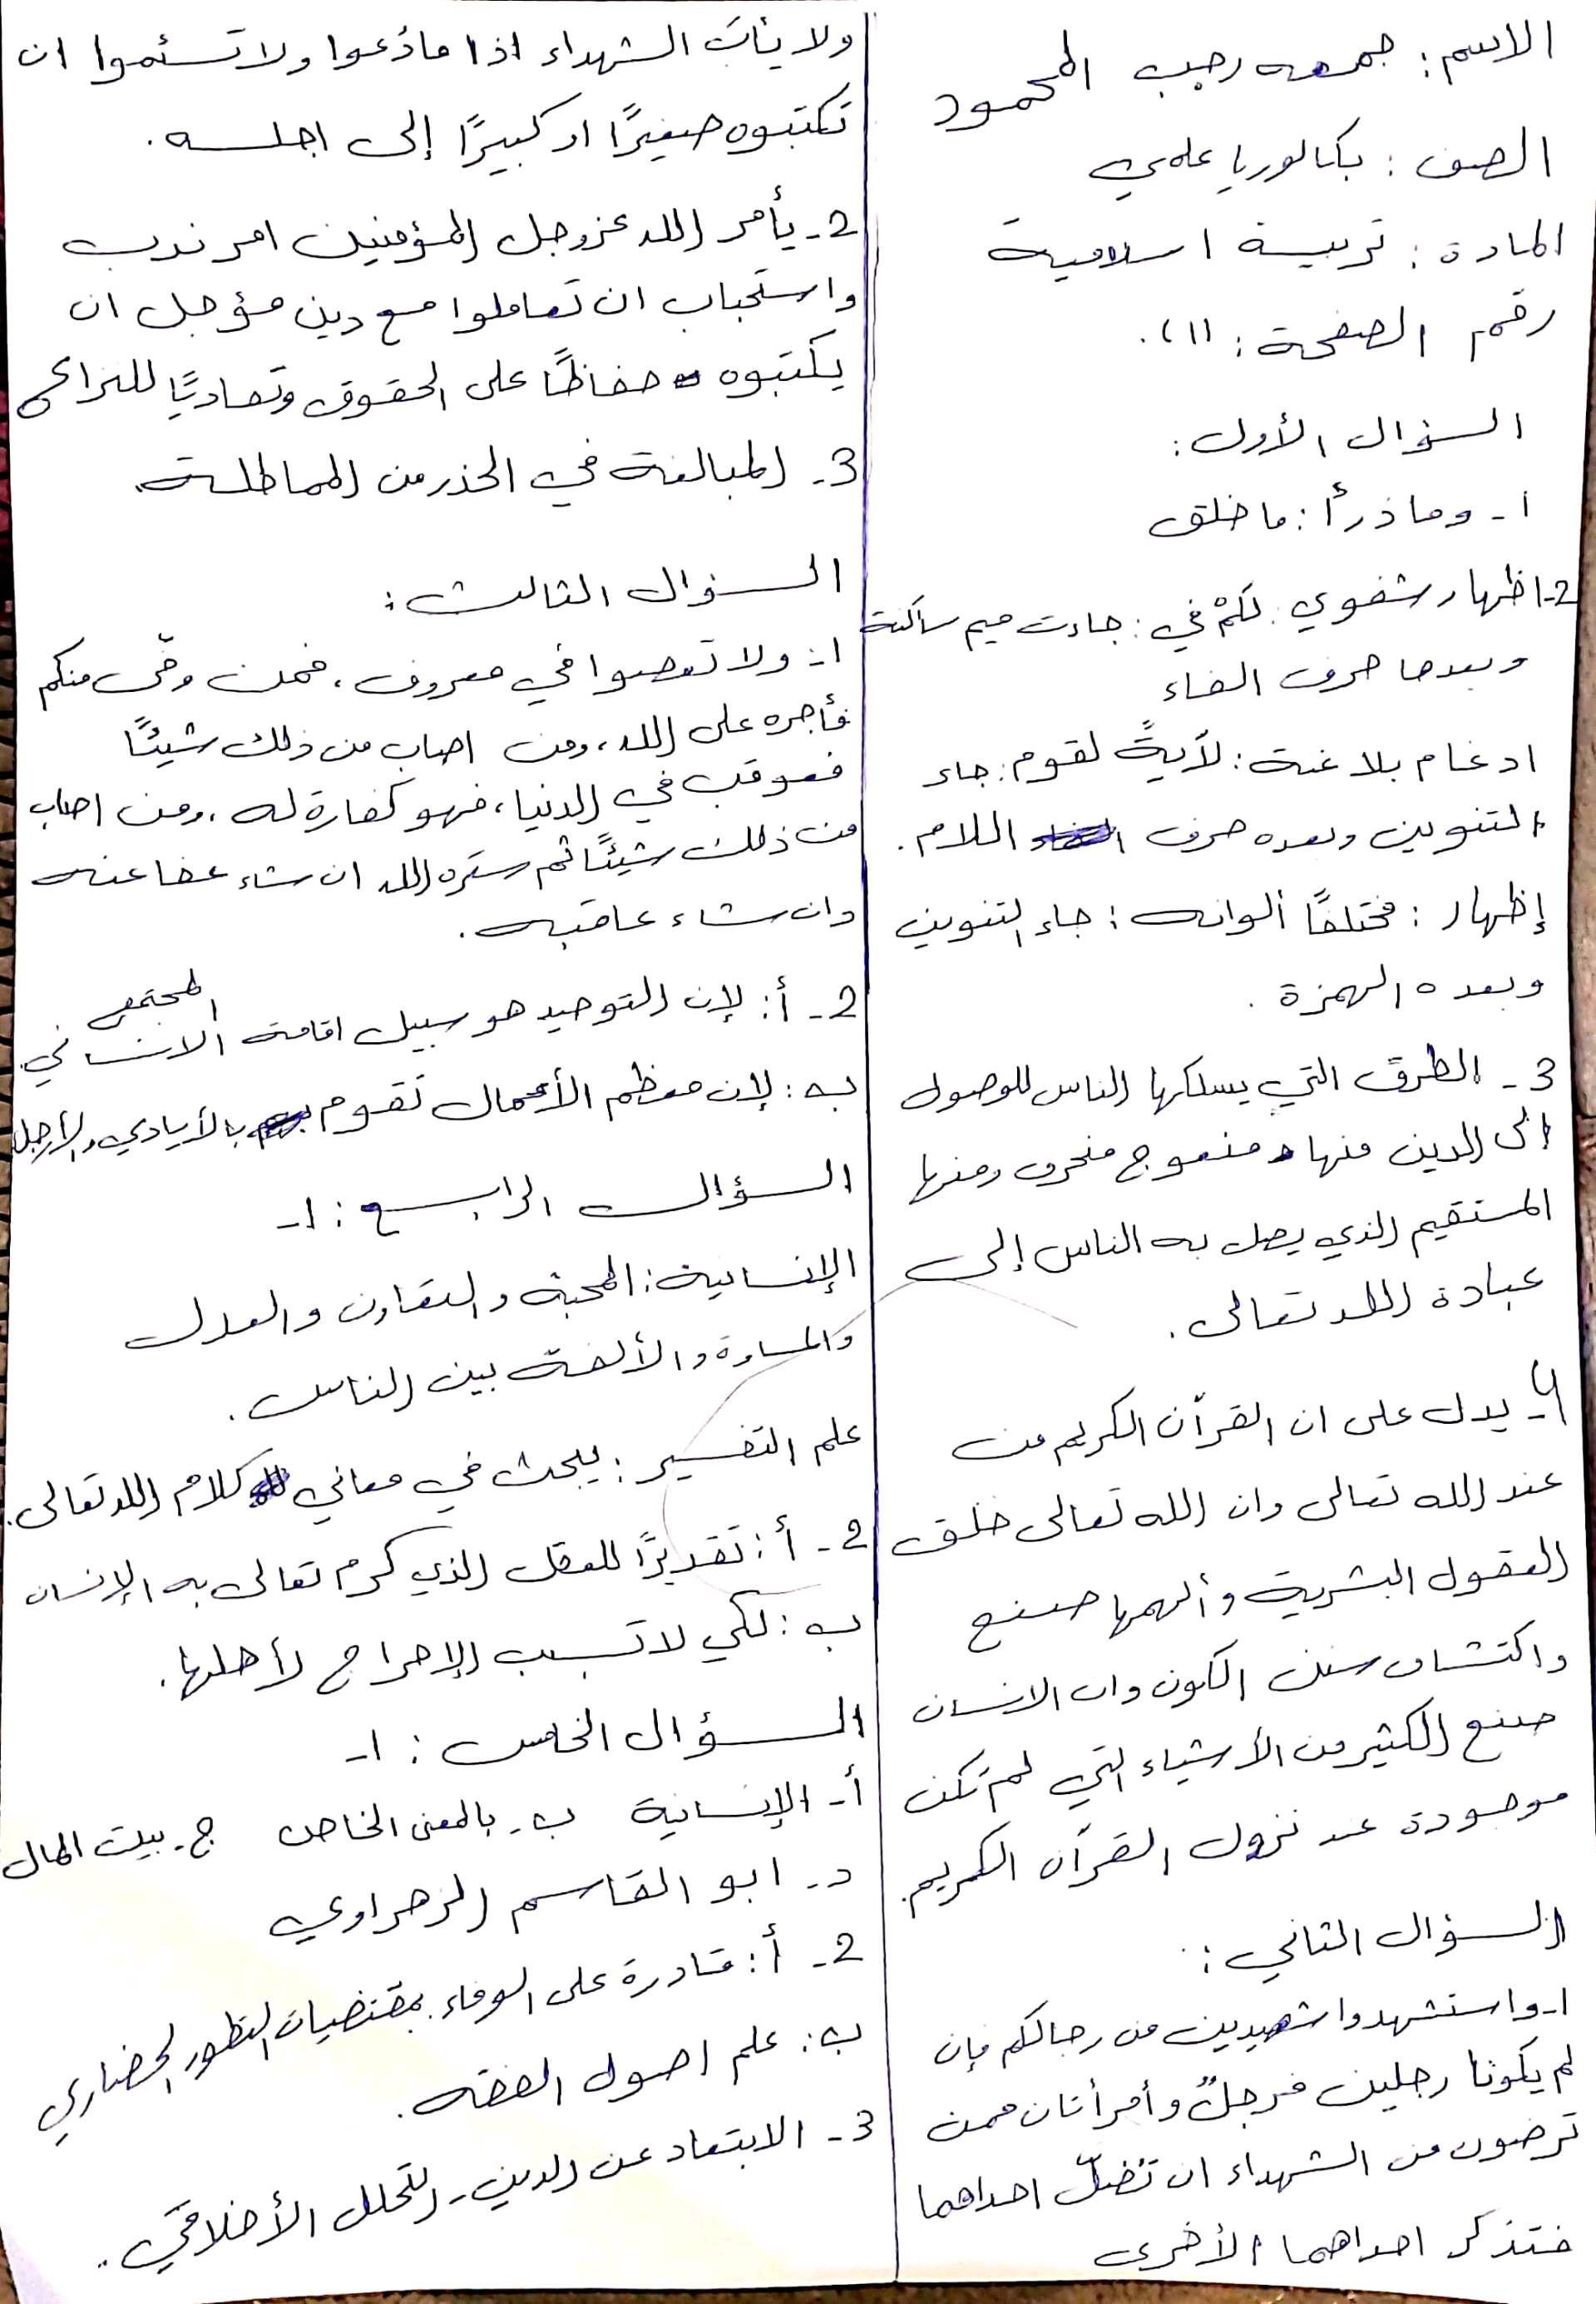 الاسم: جمعه رجب المحمود
الصف: بكالوريا علمي
المادة: تربية اسلامية
رقم الصفحة: (1).
السؤال الأول:
1- وما ذرأ: ما خلق
2- اظهار شفوي: لكمْ في: جاءت ميم ساكنة
وبعدها حرف الفاء
ادغام بلا غنة: لآيةً لقوم: جاء
التنوين وبعده حرف اللام.
إظهار: مختلفًا ألوانه: جاء التنوين
وبعده الهمزة.
3- الطرق التي يسلكها الناس للوصول
الى الدين منها معوج منحرف ومنها
المستقيم الذي يصل به الناس إلى
عبادة الله تعالى.
4- يدل على ان القرآن الكريم من
عند الله تعالى وان الله تعالى خلق
العقول البشرية وألهمها صنع
واكتشاف سنن الكون وان الانسان
صنع الكثير من الأشياء التي لم تكن
موجودة عند نزول القرآن الكريم.
السؤال الثاني:
1- واستشهدوا شهيدين من رجالكم فإن
لم يكونا رجلين فرجلٌ وأمرأتان ممن
ترضون من الشهداء ان تضلّ احداهما
فتذكر احداهما الأخرى
ولا يأبَ الشهداء اذا ما دُعوا ولا تسئموا ان
تكتبوه صغيرًا او كبيرًا إلى اجله.
2- يأمر الله عزوجل المؤمنين امر ندب
واستحباب ان تعاملوا مع دين مؤجل ان
يكتبوه حفاظًا على الحقوق وتفاديًا للنزاع
3- المبالغة في الحذر من المماطلة.
السؤال الثالث:
1- ولا تعصوا في معروف، فمن وفّى منكم
فأجره على الله، ومن اصاب من ذلك شيئًا
فعوقب في الدنيا، فهو كفارة له، ومن اصاب
من ذلك شيئًا ثم ستره الله ان شاء عفا عنه
وان شاء عاقبه.
2- أ: لإن التوحيد هو سبيل اقامة المجتمع الانساني.
ب: لإن معظم الأعمال تقوم بالأيادي والأرجل
السؤال الرابع: 1-
الإنسانية: المحبة والتعاون والعدل
والمساوة والألفة بين الناس.
علم التفسير: يبحث في معاني كلام الله تعالى.
2- أ: تقديرًا للعقل الذي كرم تعالى به الإنسان
ب: لكي لا تسبب الإحراج لأهلها.
السؤال الخامس: 1-
أ- الإنسانية ب- بالمعنى الخاص ج- بيت المال
د- ابو القاسم الزهراوي
2- أ: قادرة على الوفاء بمقتضيات التطور الحضاري
ب: علم اصول الفقه.
3- الابتعاد عن الدين - التحلل الأخلاقي.